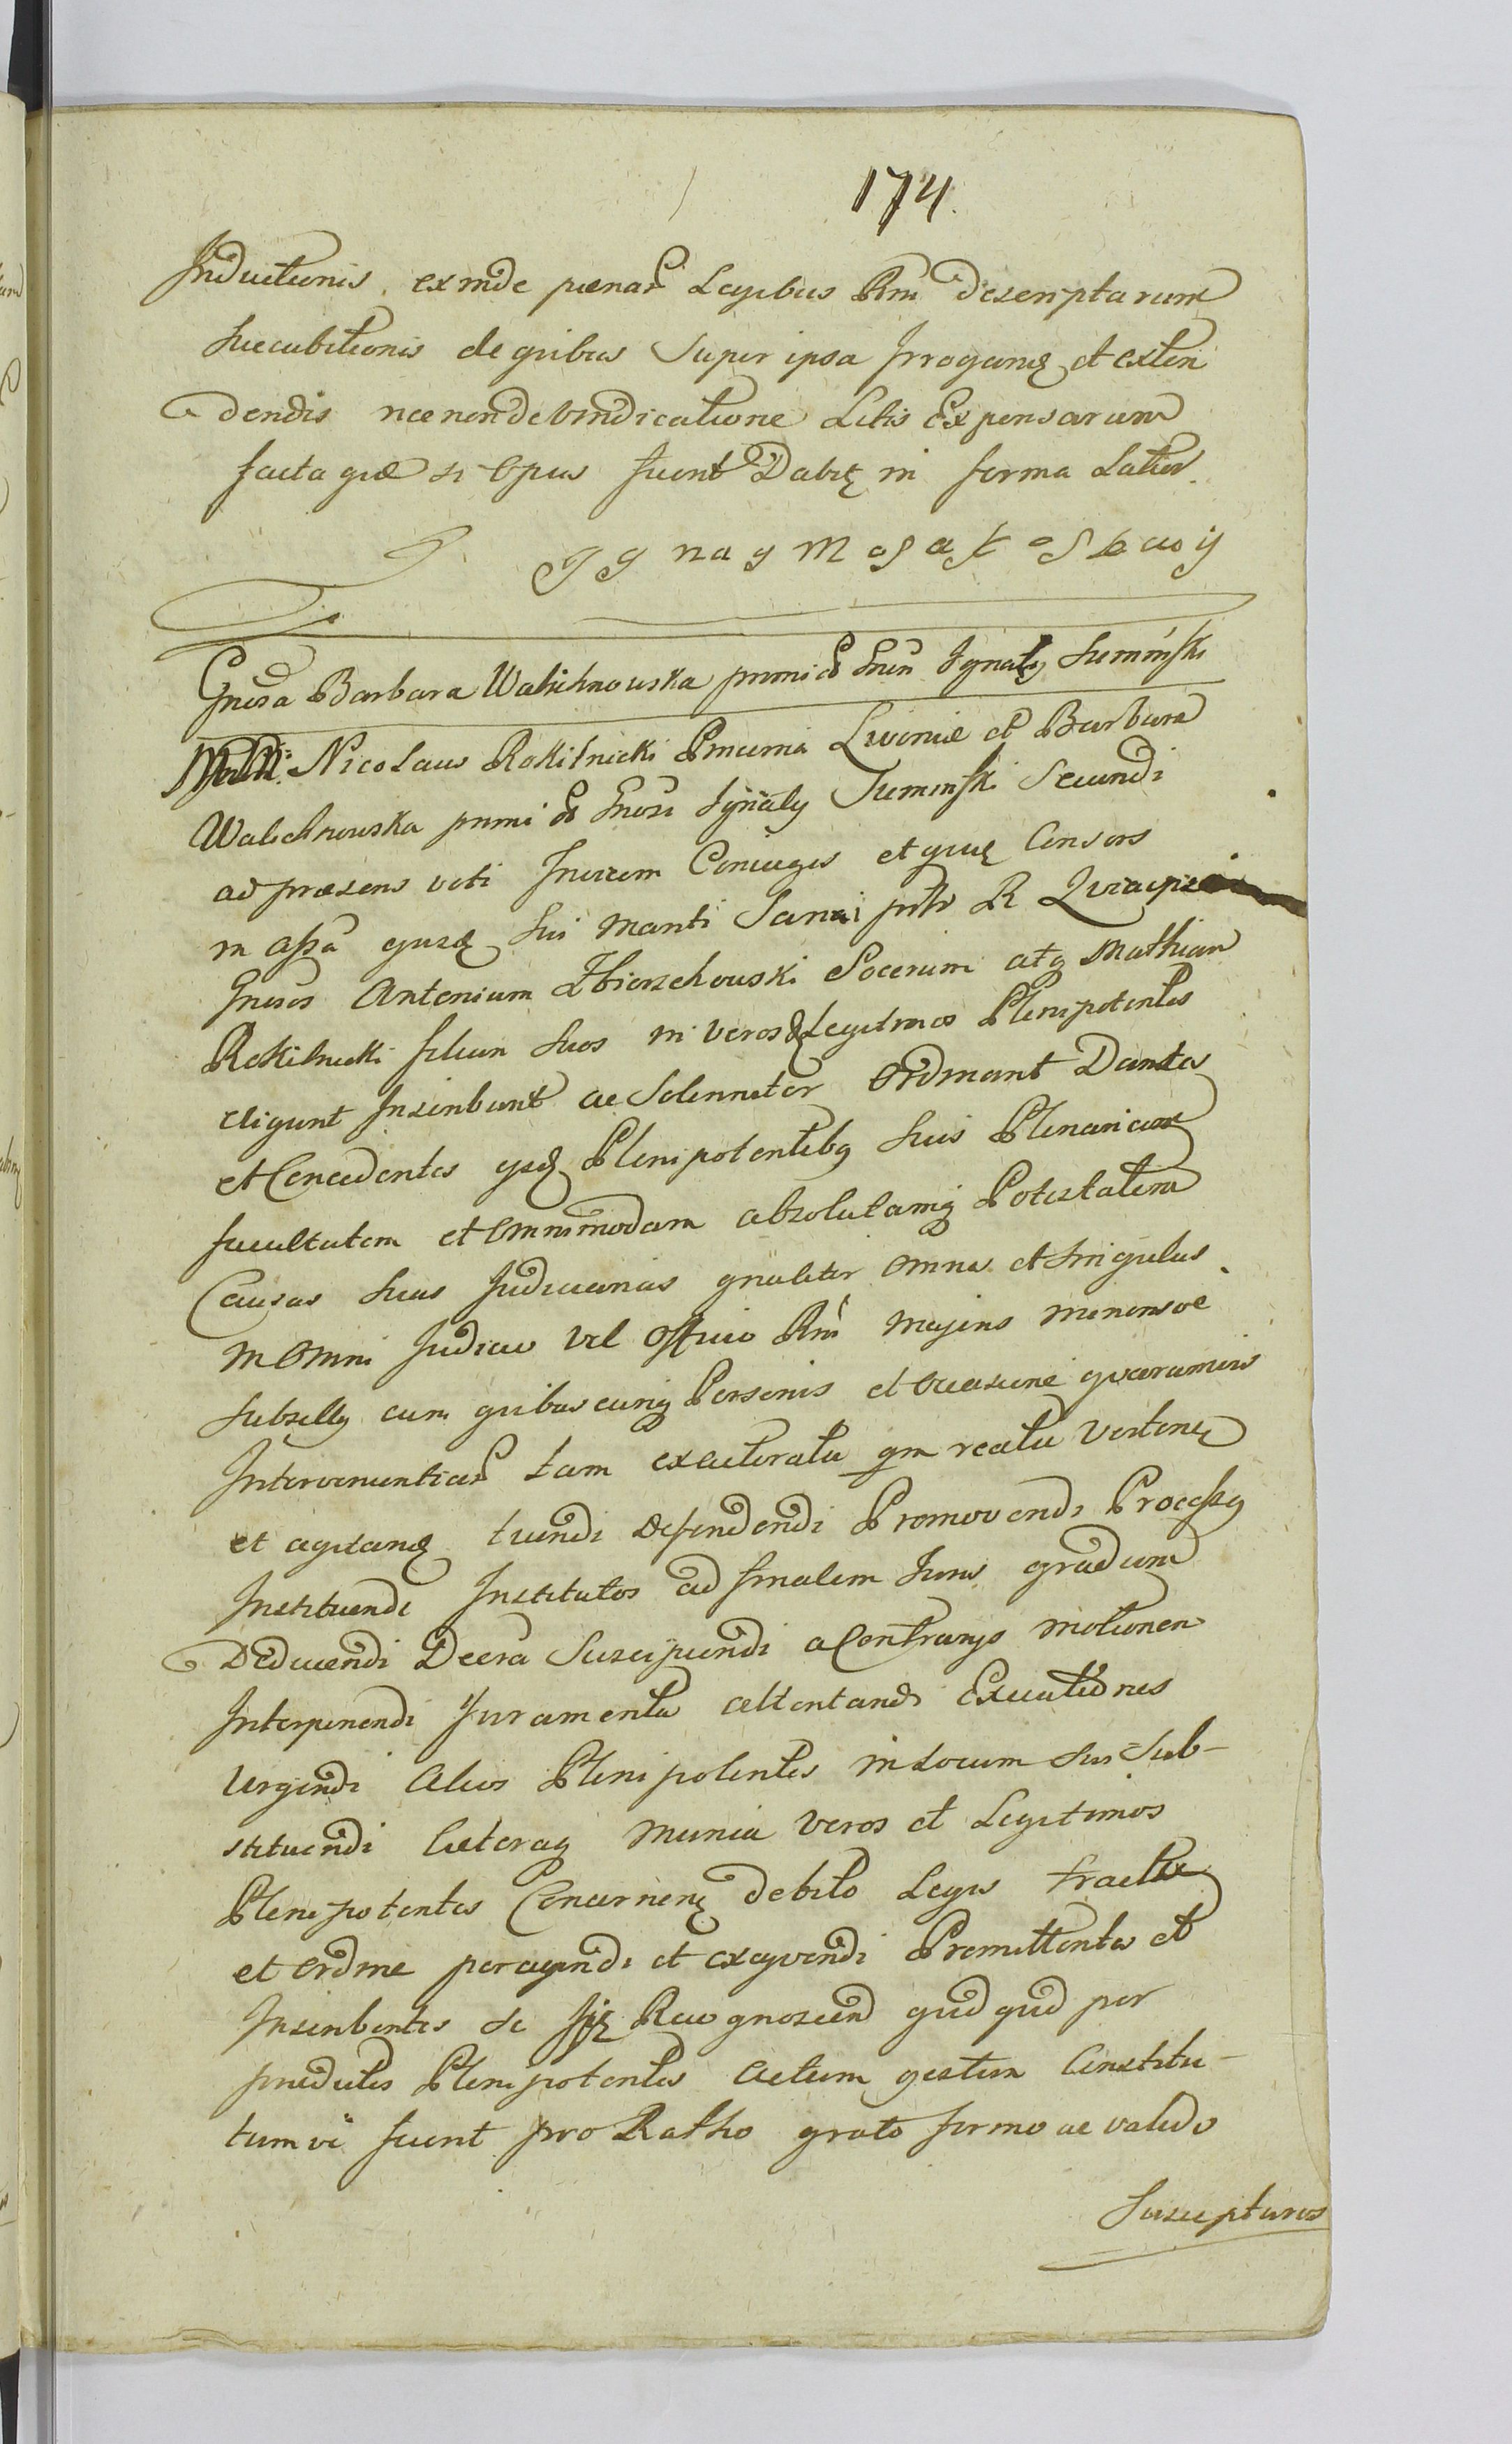 174.
Inductionis exinde paenar Legibus Rni descriptarum
Succubitionis de quibus Super ipsa Irrogans et exten
dendis nec non de Vindicatione Litis Expensarum
facta que si Opus fuerit Dabit in forma Latior.
Gnosa Barbara Walichnowska primi Gnsi Ignaty Suminski
Nicolaus Rokitnicki Pincerna Livoniae et Barbara
Walichnowska primi Gnosi Ignaty Suminski Secundi
ad praesens voti Invicem Coniuges et Consors
in assa Sui Mariti Sani R
Gnosos Antonium Zbierzchowski Socerum atq Mathiam
Rokitnicki filium Suos in Veros & Legitimos Plenipotentes
eligunt Inscribunt ac Solenniter Ordinant Dantes
et Concedentes Plenipotentibq Suis Plenariam
facultatem et Omnimodam absolutamq Potestatem
Causas Suas Judiciarias gnaliter Omnes et Singulas
in Omni Judicio Vel Officio Rni Majoris Minorisve
Subselly cum quibuscunq Personis et Occasione quarumvis
Intervenientiar tam ex actoratu qm reatu Verten
et agitan tuendi Defendendi Promovendi Processq
Instituendi Institutos ad finalem Juris gradum
Deducendi Decra Suscipiendi a Contrarys Motionem
Interponendi Juramenta attentandi Executiones
Urgendi Alios Plenipotentes in Locum Sui Sub-
stituendi Caeteraq Munia Veros et Legitimos
Plenipotentes Concernen debito Legis tractu
et Ordine peragendi et exequendi Promittentes et
Inscribentes Se Recognoscend quid quid per
praedictos Plenipotentes Actum gestum Constitu-
tumve fuerit pro Ratho grato firmo ac valido
Suscepturos